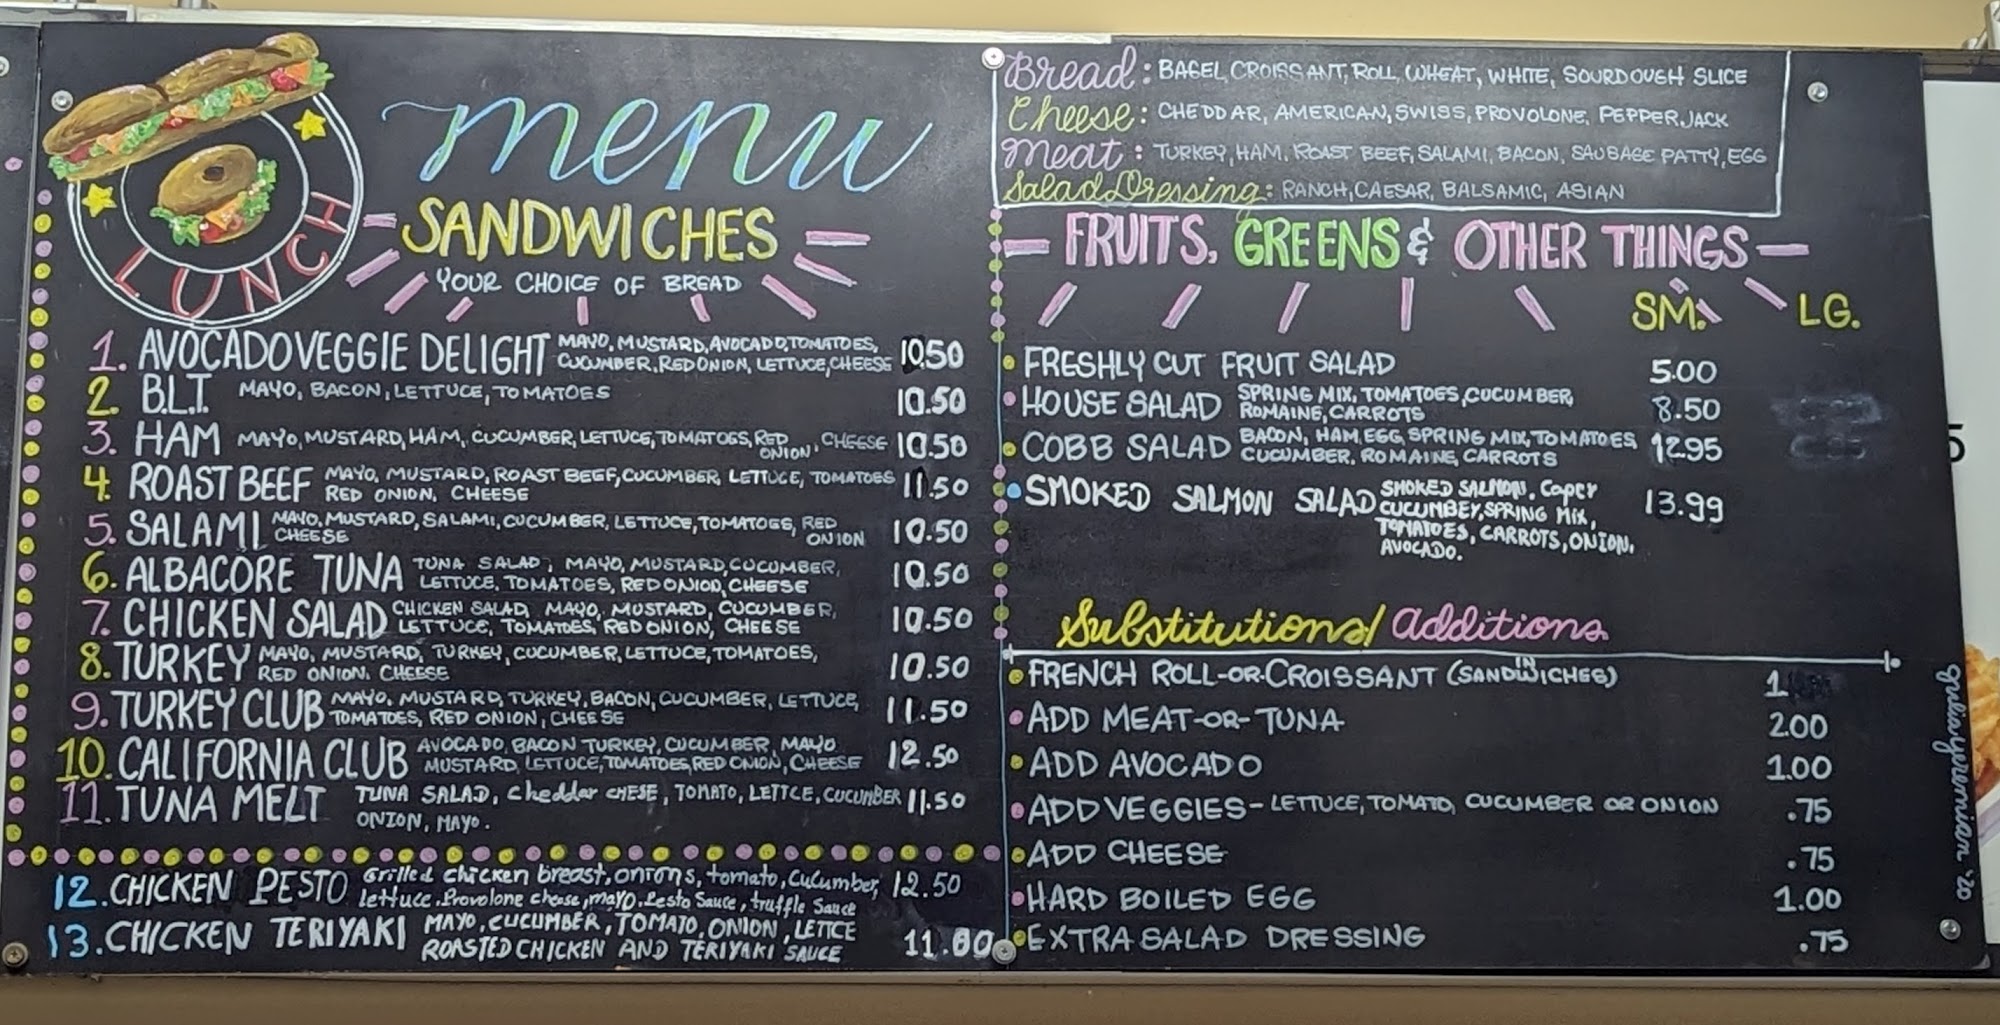 LUNCH
menu
SANDWICHES
YOUR CHOICE OF BREAD
1. AVOCADO VEGGIE DELIGHT MAYO, MUSTARD, AVOCADO, TOMATOES, 10.50
CUCUMBER, RED ONION, LETTUCE, CHEESE
2. B.L.T. MAYO, BACON, LETTUCE, TOMATOES 10.50
3. HAM MAYO, MUSTARD, HAM, CUCUMBER, LETTUCE, TOMATOES, RED ONION, CHEESE 10.50
4. ROAST BEEF MAYO, MUSTARD, ROAST BEEF, CUCUMBER, LETTUCE, TOMATOES 11.50
RED ONION, CHEESE
5. SALAMI MAYO, MUSTARD, SALAMI, CUCUMBER, LETTUCE, TOMATOES, RED ONION 10.50
CHEESE
6. ALBACORE TUNA TUNA SALAD, MAYO, MUSTARD, CUCUMBER, 10.50
LETTUCE, TOMATOES, RED ONION, CHEESE
7. CHICKEN SALAD CHICKEN SALAD, MAYO, MUSTARD, CUCUMBER, 10.50
LETTUCE, TOMATOES, RED ONION, CHEESE
8. TURKEY MAYO, MUSTARD, TURKEY, CUCUMBER, LETTUCE, TOMATOES, 10.50
RED ONION, CHEESE
9. TURKEY CLUB MAYO, MUSTARD, TURKEY, BACON, CUCUMBER, LETTUCE, 11.50
TOMATOES, RED ONION, CHEESE
10. CALIFORNIA CLUB AVOCADO, BACON TURKEY, CUCUMBER, MAYO 12.50
MUSTARD, LETTUCE, TOMATOES, RED ONION, CHEESE
11. TUNA MELT TUNA SALAD, cheddar CHESE, TOMATO, LETTCE, CUCUMBER 11.50
ONION, MAYO.
12. CHICKEN PESTO Grilled chicken breast, onions, tomato, Cucumber, 12.50
lettuce. Provolone cheese, mayo. Pesto Sauce, truffle Sauce
13. CHICKEN TERIYAKI MAYO, CUCUMBER, TOMATO, ONION, LETTCE 11.00
ROASTED CHICKEN AND TERIYAKI SAUCE
Bread: BAGEL, CROISSANT, ROLL, WHEAT, WHITE, SOURDOUGH SLICE
Cheese: CHEDDAR, AMERICAN, SWISS, PROVOLONE, PEPPER JACK
Meat: TURKEY, HAM, ROAST BEEF, SALAMI, BACON, SAUSAGE PATTY, EGG
Salad Dressing: RANCH, CAESAR, BALSAMIC, ASIAN
FRUITS, GREENS & OTHER THINGS
SM. LG.
FRESHLY CUT FRUIT SALAD 5.00
HOUSE SALAD SPRING MIX, TOMATOES, CUCUMBER, 8.50
ROMAINE, CARROTS
COBB SALAD BACON, HAM, EGG, SPRING MIX, TOMATOES 12.95
CUCUMBER, ROMAINE, CARROTS
SMOKED SALMON SALAD SMOKED SALMON, Caper 13.99
CUCUMBEY, SPRING MIX,
TOMATOES, CARROTS, ONION,
AVOCADO.
Substitutions/Additions
FRENCH ROLL-OR-CROISSANT (IN SANDWICHES) 1
ADD MEAT-OR-TUNA 2.00
ADD AVOCADO 1.00
ADD VEGGIES - LETTUCE, TOMATO, CUCUMBER OR ONION .75
ADD CHEESE .75
HARD BOILED EGG 1.00
EXTRA SALAD DRESSING .75
juliayeremian '20
5